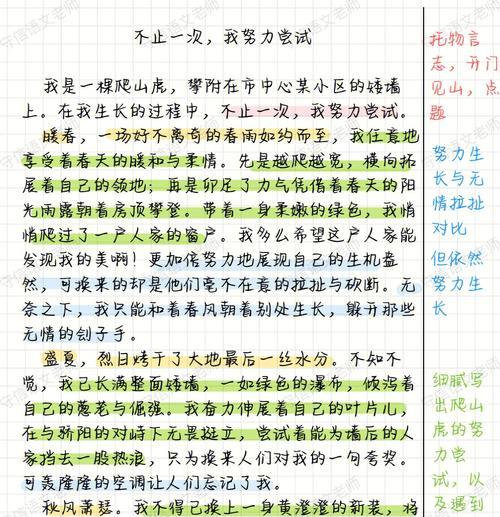 不止一次，我努力尝试
我是一棵爬山虎，攀附在市中心某小区的矮墙
上。在我生长的过程中，不止一次，我努力尝试。
暖春，一场好不离奇的春雨如约而至，我任意地
享受着春天的暖和与柔情。先是越爬越宽，横向拓
展着自己的领地；再是卯足了力气凭借着春天的阳
光雨露朝着房顶攀登。带着一身柔嫩的绿色，我悄
悄爬过了一户人家的窗户。我多么希望这户人家能
发现我的美啊！更加倍努力地展现自己的生机盎
然，可换来的却是他们毫不在意的拉扯与砍断。无
奈之下，我只能和着春风朝着别处生长，躲开那些
无情的刽子手。
盛夏，烈日烤干了大地最后一丝水分。不知不
觉，我已长满整面矮墙，一如绿色的瀑布，倾泻着
自己的葱茏与倔强。我奋力伸展着自己的叶片儿，
在与骄阳的对峙下无畏挺立，尝试着能为墙后的人
家挡去一股热浪，只为换来人们对我的一句夸奖。
可轰隆隆的空调让人们忘记了我。
秋风萧瑟。我不得已换上一身黄澄澄的新装，将
托物言
志，开门
见山，点
题
努力生
长与无
情拉扯
对比
但依然
努力生
长
细腻写
出爬山
虎的努
力尝
试，以
及遇到
守信语文老师